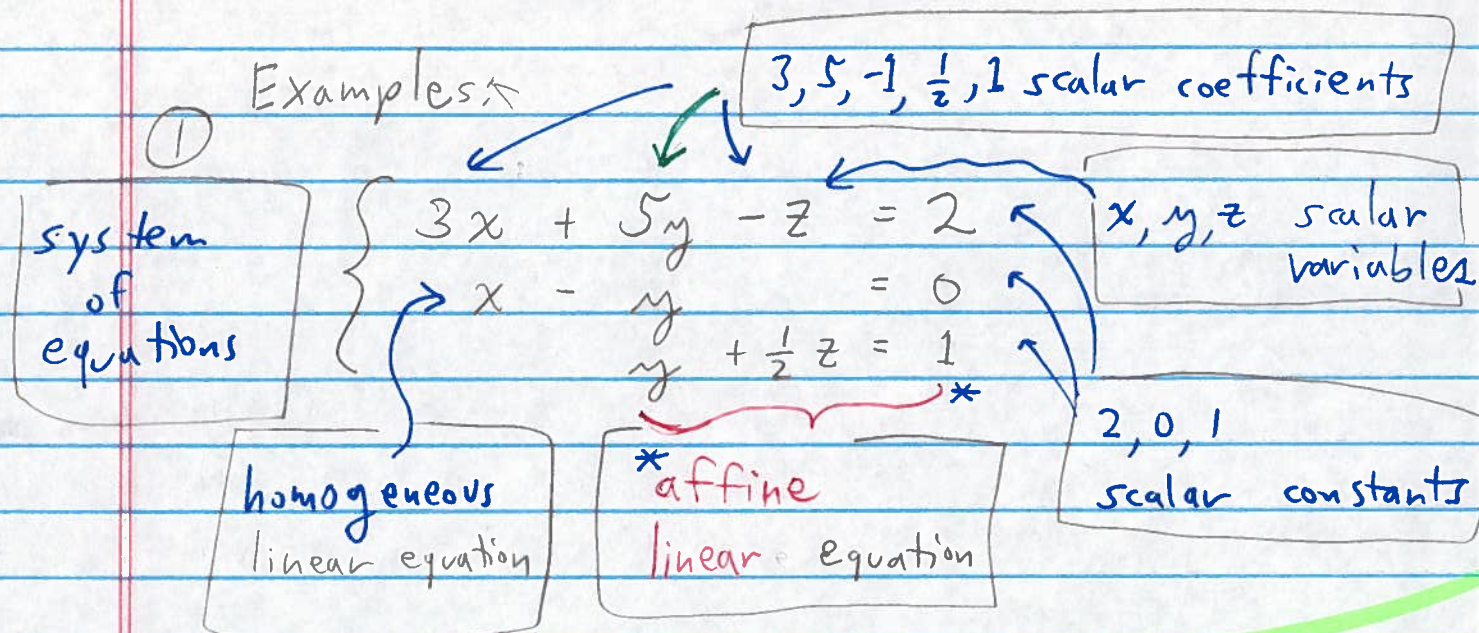 Examples:
3, 5, -1, 1/2, 1 scalar coefficients
①
system
of
equations
3x + 5y - z = 2
x - y = 0
y + 1/2 z = 1 *
x, y, z scalar
variables
2, 0, 1
scalar constants
homogeneous
linear equation
* affine
linear equation